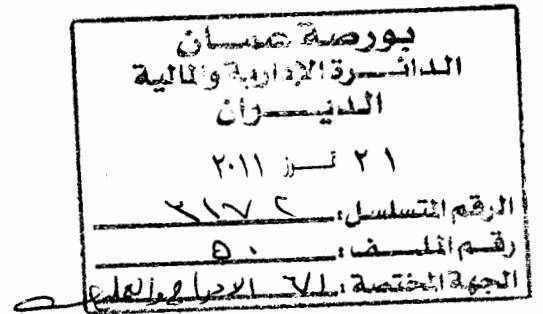 بورصة عمان
الدائرة الإدارية والمالية
الديوان
٢١ تموز ٢٠١١
الرقم المتسلسل: ٣١٧٢
رقم الملف: ٥٠
الجهة المختصة: الإدراج